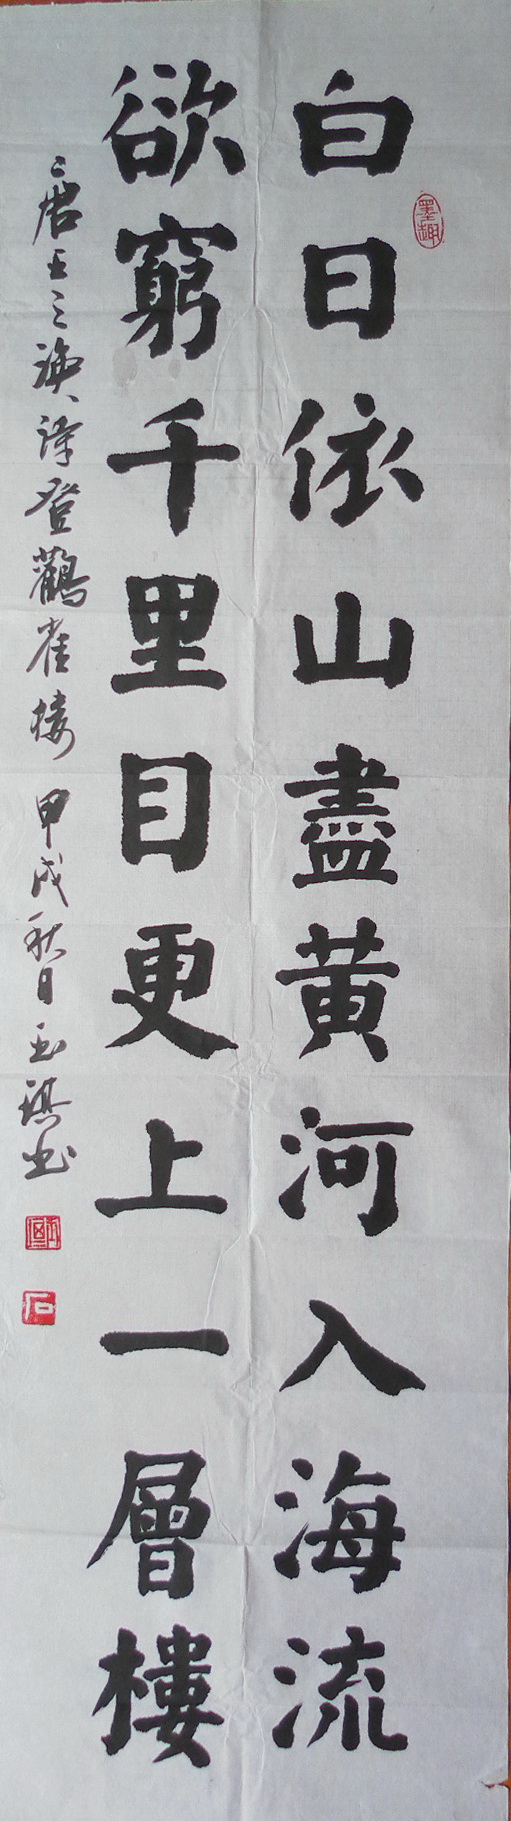 白日依山盡黄河入海流
欲窮千里目更上一層樓
唐王之渙詩登鸛雀楼 甲戌秋日玉琪书
墨趣
石